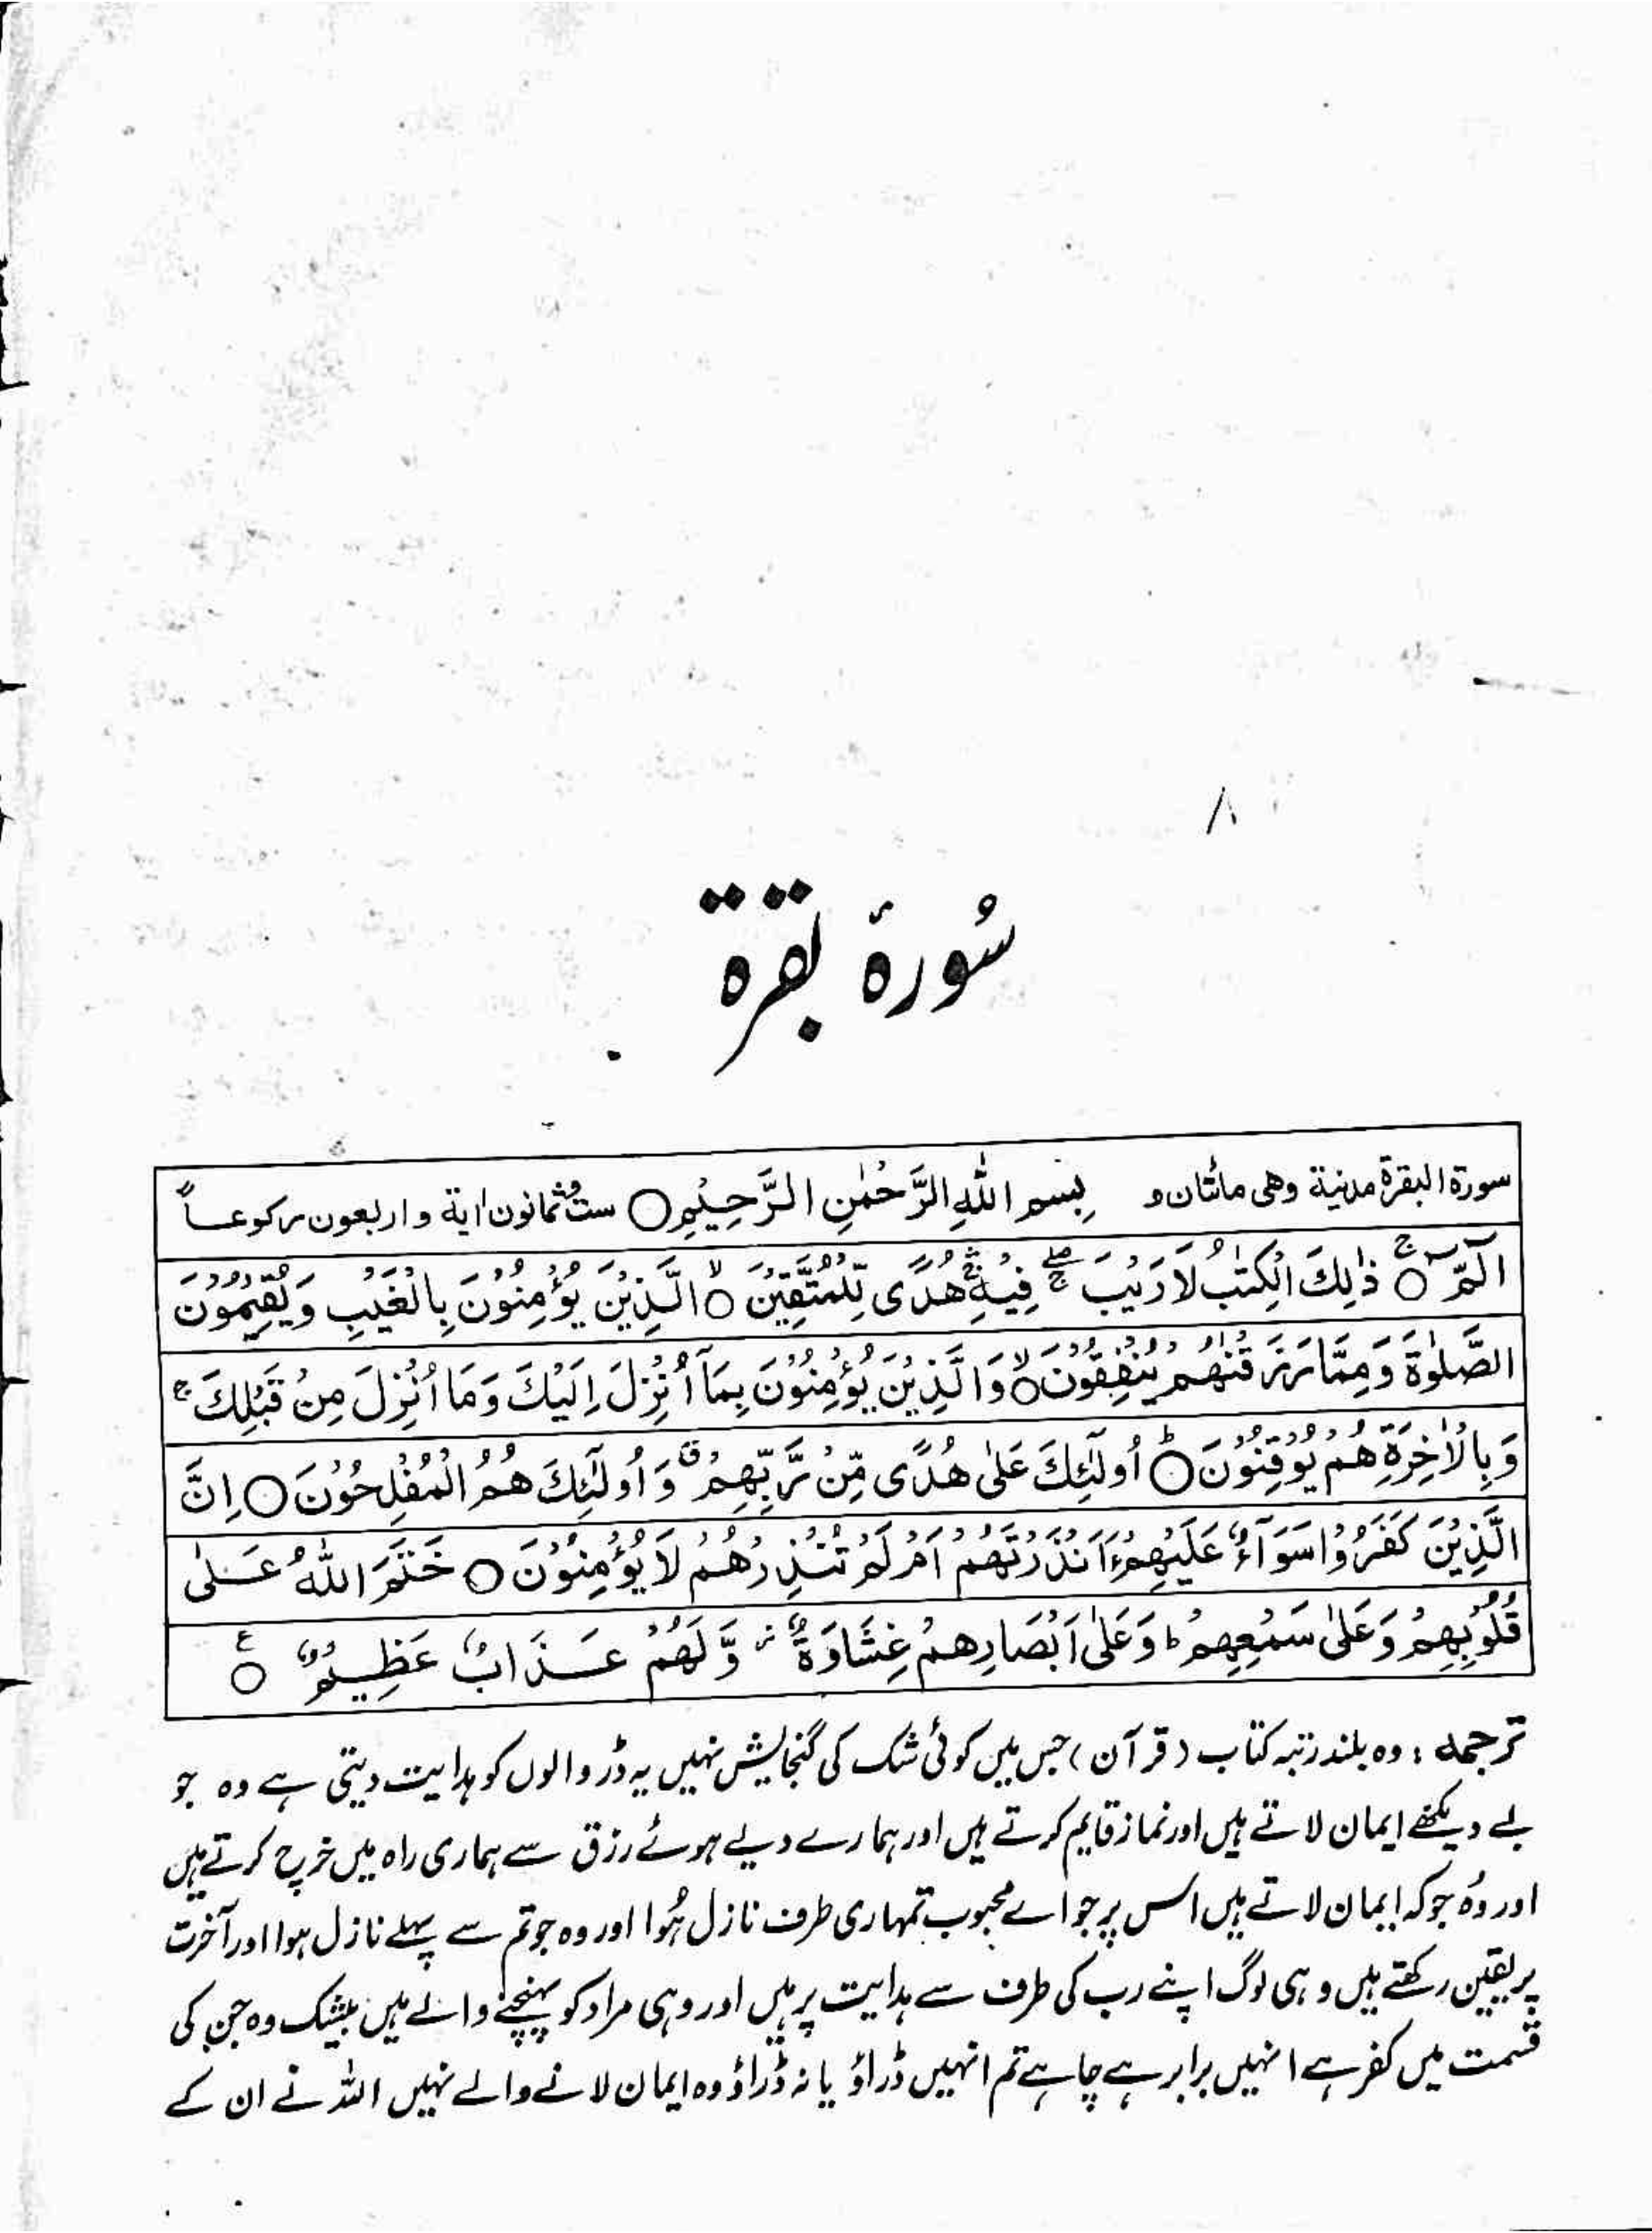 ۸
سُورۂ بقرۃ
سورۃ البقرۃ مدنیۃ وھی مائتان و بِسْمِ اللّٰهِ الرَّحْمٰنِ الرَّحِیْمِ ○ ستٌّ وثمانون اٰیۃ و اربعون رکوعاً
الٓمّٓ ○ۚ ذٰلِكَ الْكِتٰبُ لَا رَیْبَ ۖۛۚ فِیْهِ ۛۚ هُدًى لِّلْمُتَّقِیْنَ ○ۙ الَّذِیْنَ یُؤْمِنُوْنَ بِالْغَیْبِ وَیُقِیْمُوْنَ
الصَّلٰوةَ وَمِمَّا رَزَقْنٰهُمْ یُنْفِقُوْنَ ○ۙ وَالَّذِیْنَ یُؤْمِنُوْنَ بِمَآ اُنْزِلَ اِلَیْكَ وَمَا اُنْزِلَ مِنْ قَبْلِكَ ۚ
وَبِالْاٰخِرَةِ هُمْ یُوْقِنُوْنَ ○ؕ اُولٰٓئِكَ عَلٰى هُدًى مِّنْ رَّبِّهِمْ ۗ وَاُولٰٓئِكَ هُمُ الْمُفْلِحُوْنَ ○ اِنَّ
الَّذِیْنَ كَفَرُوْا سَوَآءٌ عَلَیْهِمْ ءَاَنْذَرْتَهُمْ اَمْ لَمْ تُنْذِرْهُمْ لَا یُؤْمِنُوْنَ ○ خَتَمَ اللّٰهُ عَلٰى
قُلُوْبِهِمْ وَعَلٰى سَمْعِهِمْ ؕ وَعَلٰى اَبْصَارِهِمْ غِشَاوَةٌ ز وَّلَهُمْ عَذَابٌ عَظِیْمٌ ○ ع
ترجمہ : وہ بلند رتبہ کتاب (قرآن) جس میں کوئی شک کی گنجایش نہیں یہ ڈر والوں کو ہدایت دیتی ہے وہ جو
بے دیکھے ایمان لاتے ہیں اور نماز قایم کرتے ہیں اور ہمارے دیے ہوئے رزق سے ہماری راہ میں خرچ کرتے ہیں
اور وُہ جو کہ ایمان لاتے ہیں اس پر جو اے محبوب تمہاری طرف نازل ہُوا اور وہ جو تم سے پہلے نازل ہوا اور آخرت
پر یقین رکھتے ہیں وہی لوگ اپنے رب کی طرف سے ہدایت پر ہیں اور وہی مراد کو پہنچنے والے ہیں بیشک وہ جن کی
قسمت میں کفر ہے انہیں برابر ہے چاہے تم انہیں ڈراؤ یا نہ ڈراؤ وہ ایمان لانے والے نہیں اللہ نے ان کے